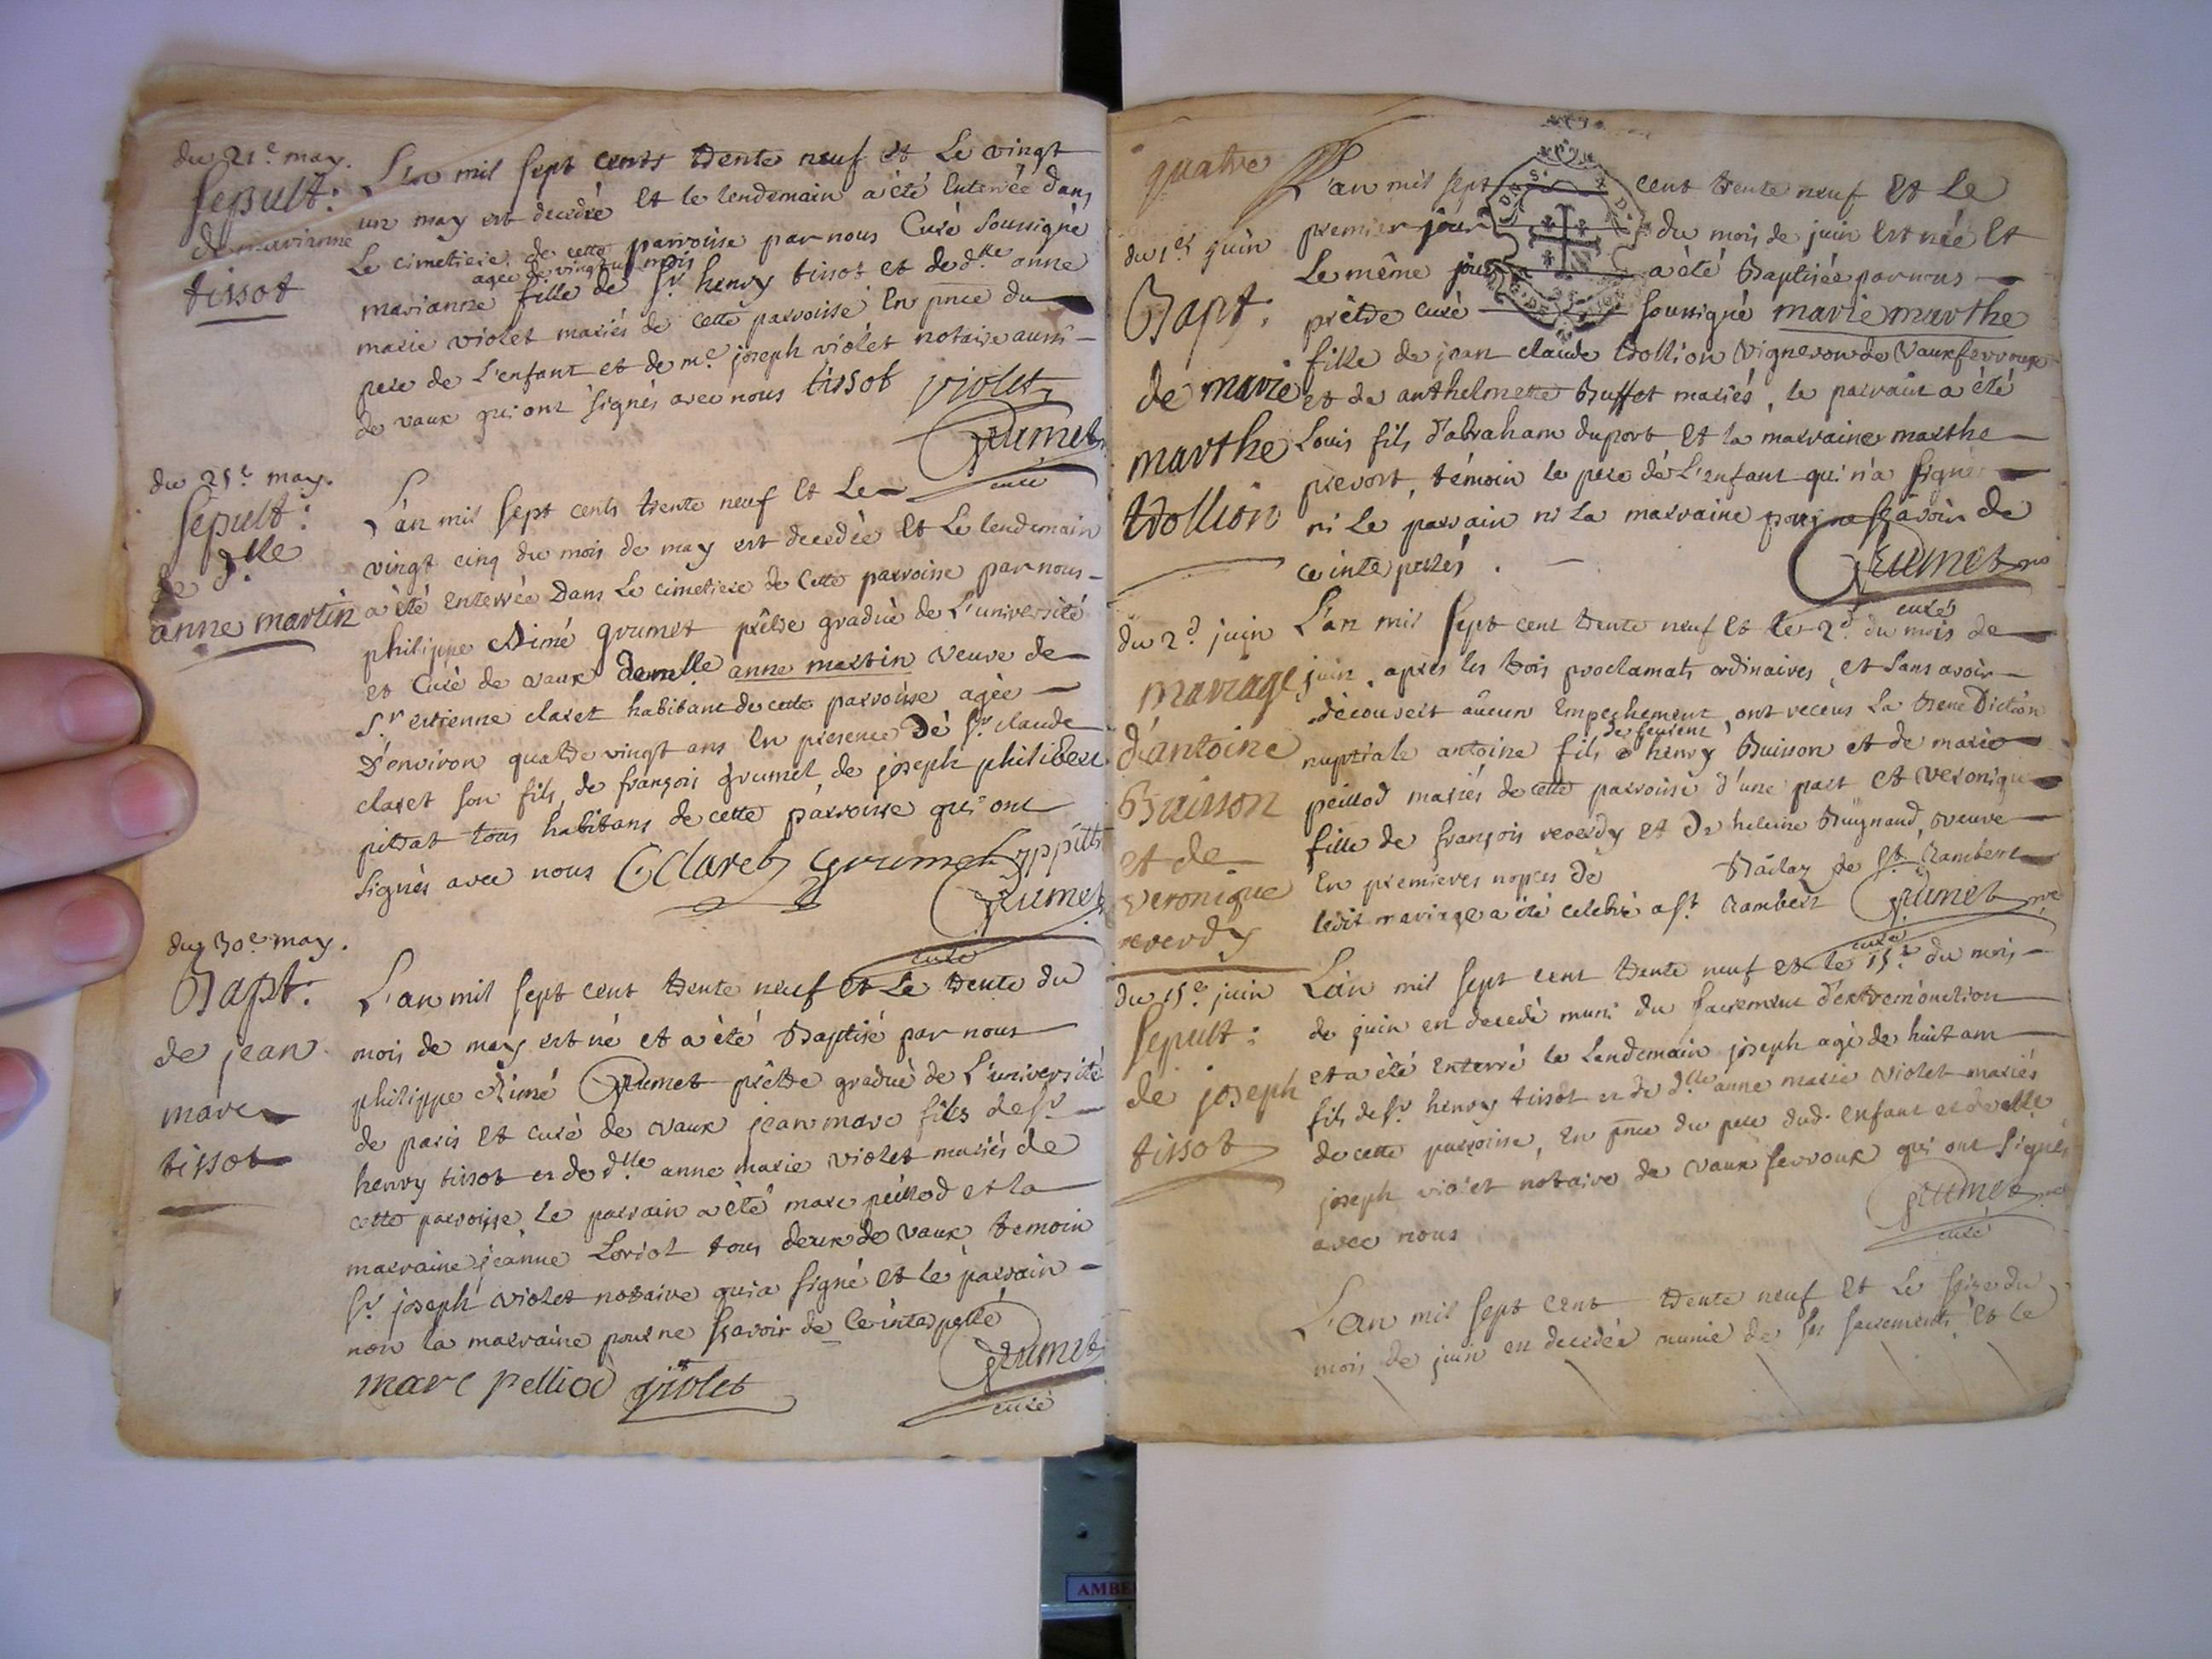 du 21e may.
Sepult:
de marianne
tissot
L'an mil sept cents trente neuf et Le vingt
un may est decedée Et le lendemain a été Enterrée dans
Le cimetiere de cette parroisse par nous Curé soussigné
agée de vingt mois
marianne fille de Sr henry tissot et de dlle anne
marie violet mariés de cette parroisse En pnce du
pere de L'enfant et de me joseph violet notaire aussi
de vaux qui ont signés avec nous tissot violet
Grumet
curé
du 25e may.
Sepult:
de dlle
anne martin
L'an mil sept cents trente neuf Et Le
vingt cinq du mois de may est decedée Et Le lendemain
a été enterrée Dans Le cimetiere de Cette parroisse par nous
philippe Aimé grumet prêtre gradué de L'université
et Curé de vaux demlle anne martin veuve de
Sr estienne claret habitant de cette parroisse agée
D'environ quatre vingt ans En presence Dé Sr claude
claret son fils, de françois grumet, de joseph philibert
pittrat tous habitans de cette parroisse qui ont
signés avec nous C Claret grumet
Grumet
curé
du 30e may.
Bapt:
de jean
marc
tissot
L'an mil sept cent trente neuf et Le trente du
mois de may est né et a été Baptisé par nous
philippe Aimé Grumet prêtre gradué de L'université
de paris Et curé de vaux jean marc fils de Sr
henry tissot et de dlle anne marie violet mariés de
cette parroisse, le parrain a été marc peillod et la
marraine jeanne Loriol tous deux de vaux temoin
Sr joseph violet notaire qui a signé et le parrain
non la marraine pour ne sçavoir de Ce interpellé
marc pelliod violet Grumet
curé
quatre
du 1er juin
Bapt:
de marie
marthe
trollion
L'an mil sept cent trente neuf Et Le
premier jour du mois de juin Est née Et
Le même jour a été Baptisée par nous
prêtre curé soussigné marie marthe
fille de jean claude trollion vigneron de vaux fevroux
et de anthelmette Buffet mariés, le parrain a été
Louis fils d'abraham duport Et la marraine marthe
prevost, témoin le pere dé L'enfant qui n'a signé
ni Le parrain ni La marraine pour ne sçavoir de
ce interpelés.
Grumet
curé
du 2d juin
mariage
d'antoine
Buisson
et de
veronique
reverdy
L'an mil sept cent trente neuf Et le 2d du mois de
juin, apres les trois proclamats ordinaires, et sans avoir
découvert aucun Empechement, ont receus La Benediction
de feu
nuptiale antoine fils henry Buisson et de marie
peillod mariés de cette parroisse d'une part et veronique
fille de françois reverdy et De helenne Buÿnand, veuve
En premieres nopces de Bailay de St Rambert
ledit mariage a été celebré a St Rambert Grumet
curé
du 15e juin
Sepult:
de joseph
tissot
L'an mil sept cent trente neuf et le 15e du mois
de juin en decedé muni du Sacrement d'extremonction
et a été enterré le Lendemain joseph agé de huit ans
fils de Sr henry tissot et de dlle anne marie violet mariés
de cette parroisse, En pnce du pere dud. enfant et de
joseph violet notaire de vaux fevroux qui ont signés
avec nous
Grumet
curé
L'an mil sept cent trente neuf Et Le seize du
mois de juin en decedée munie de ses sacrements et le
AMBE